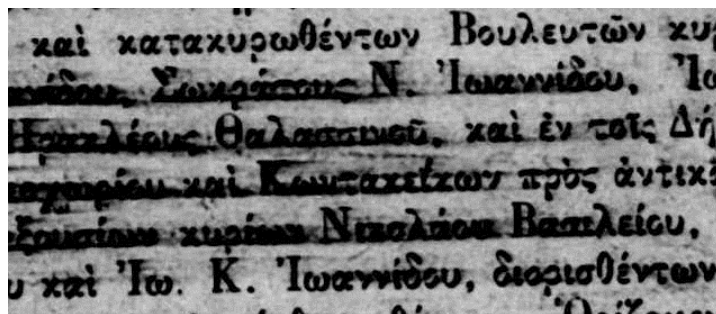 καὶ κατακυρωθέντων Βουλευτῶν κυρ
Σωκράτους Ν. Ἰωαννίδου, Ἰω
Ἡρακλέους Θαλασσινοῦ, καὶ ἐν τοῖς Δή
καὶ Κωντακείκων πρὸς ἀντικ
κυρίων Νικολάου Βασιλείου,
υ καὶ Ἰω. Κ. Ἰωαννίδου, διορισθέντων